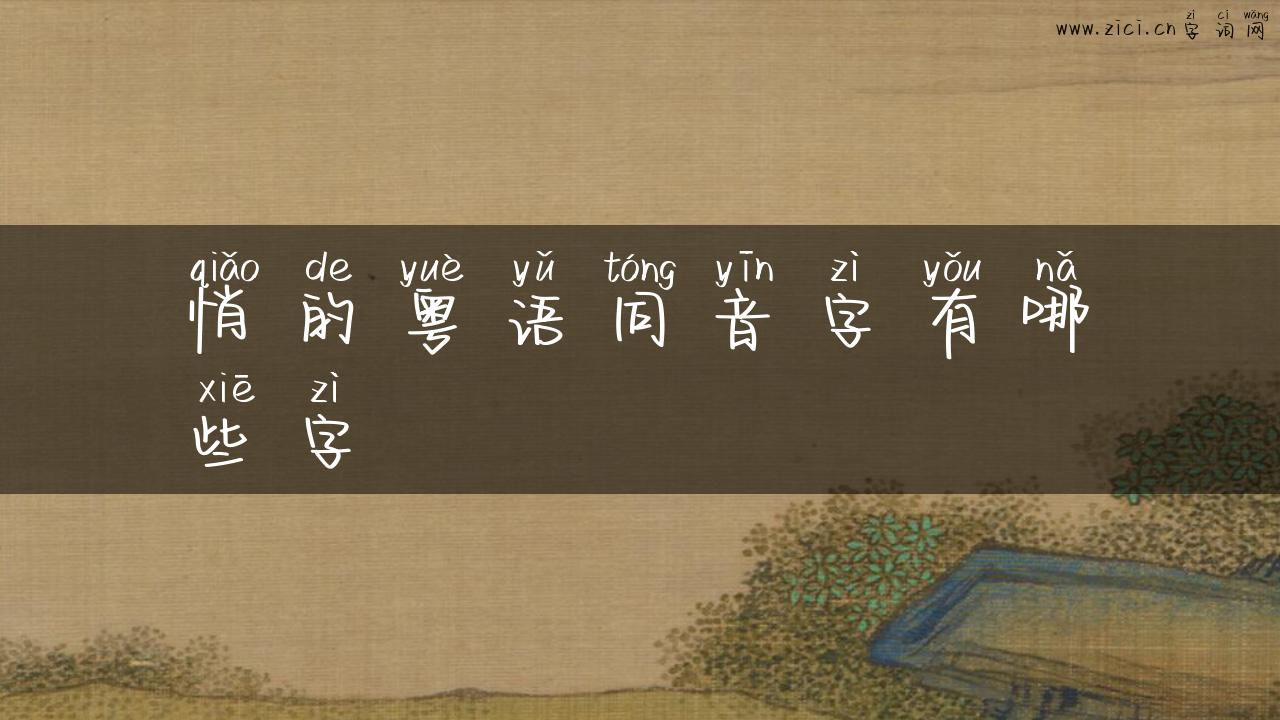 zì cí wǎng
www.zici.cn 字词网
qiǎo de yuè yǔ tóng yīn zì yǒu nǎ
悄的粤语同音字有哪
xiē zì
些字